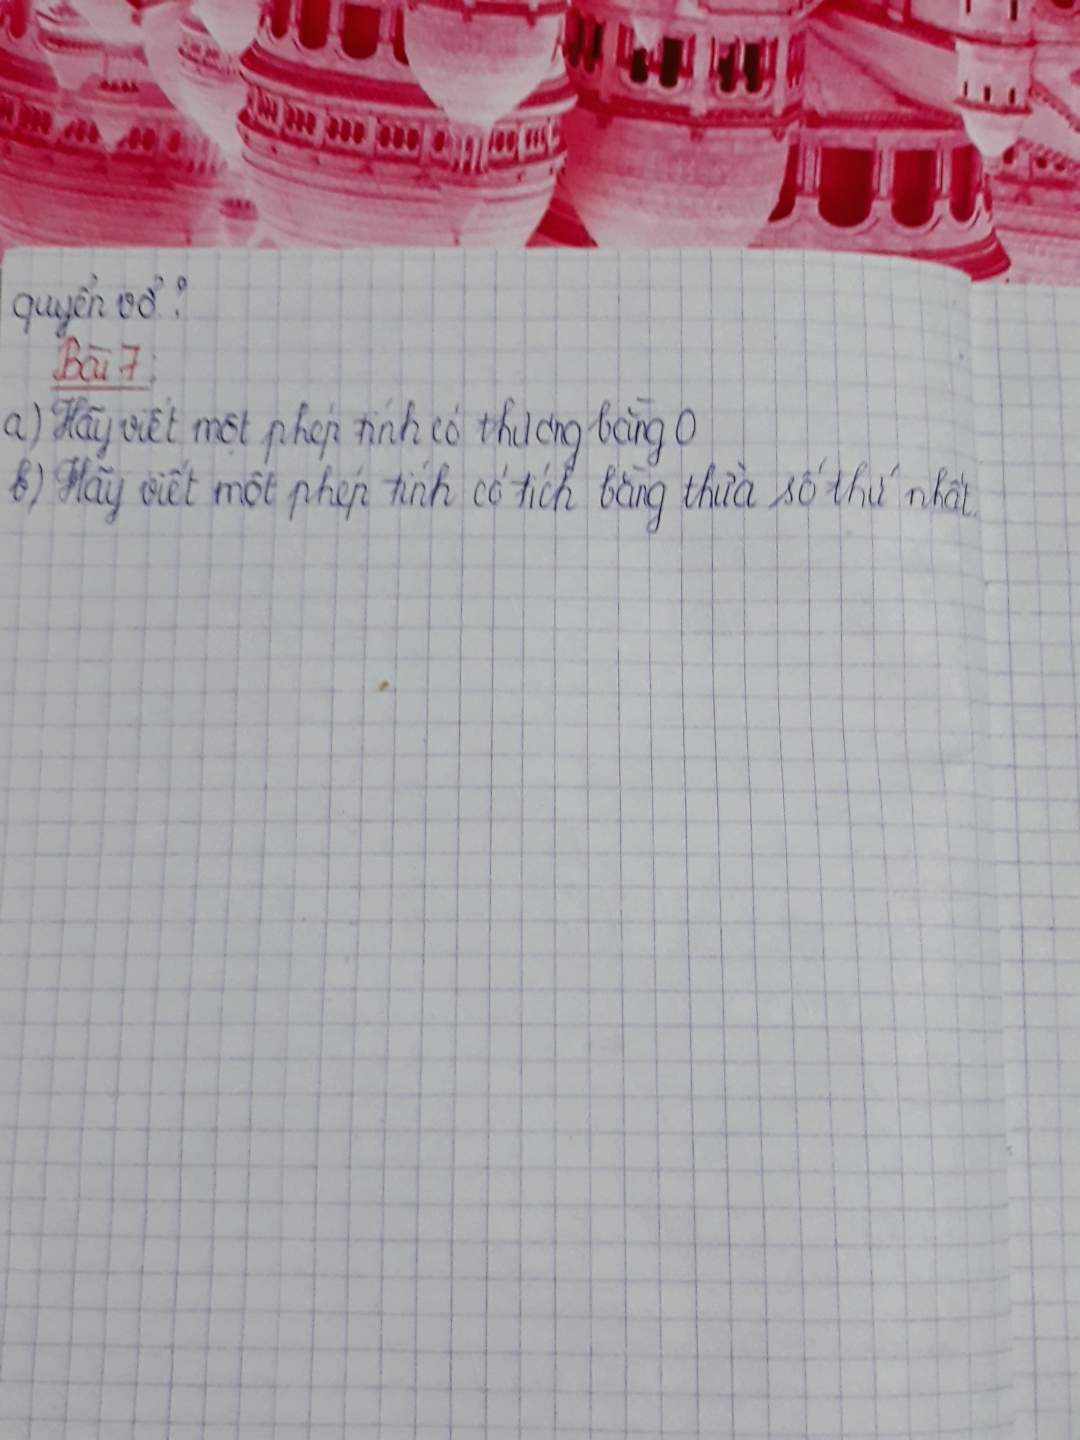 quyển vở?
Bài 7:
a) Hãy viết một phép tính có thương bằng 0
b) Hãy viết một phép tính có tích bằng thừa số thứ nhất.